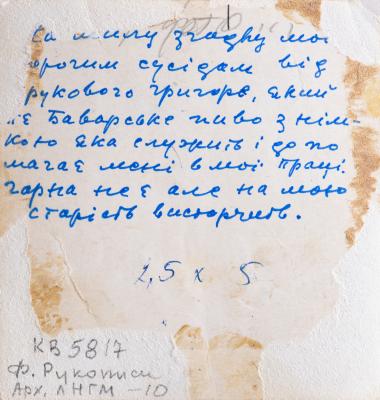 На милу згадку мої
дорогим сусідам від
рукового Григорє, який
пє Баварське пиво з нім-
кою яка служить і допо
магає мені в мої праці.
Гарна не є але на мою
старість вистарчить.
2,5 х 5
КВ 5817
Ф. Рукописи
Арх. ЛНГМ – 10